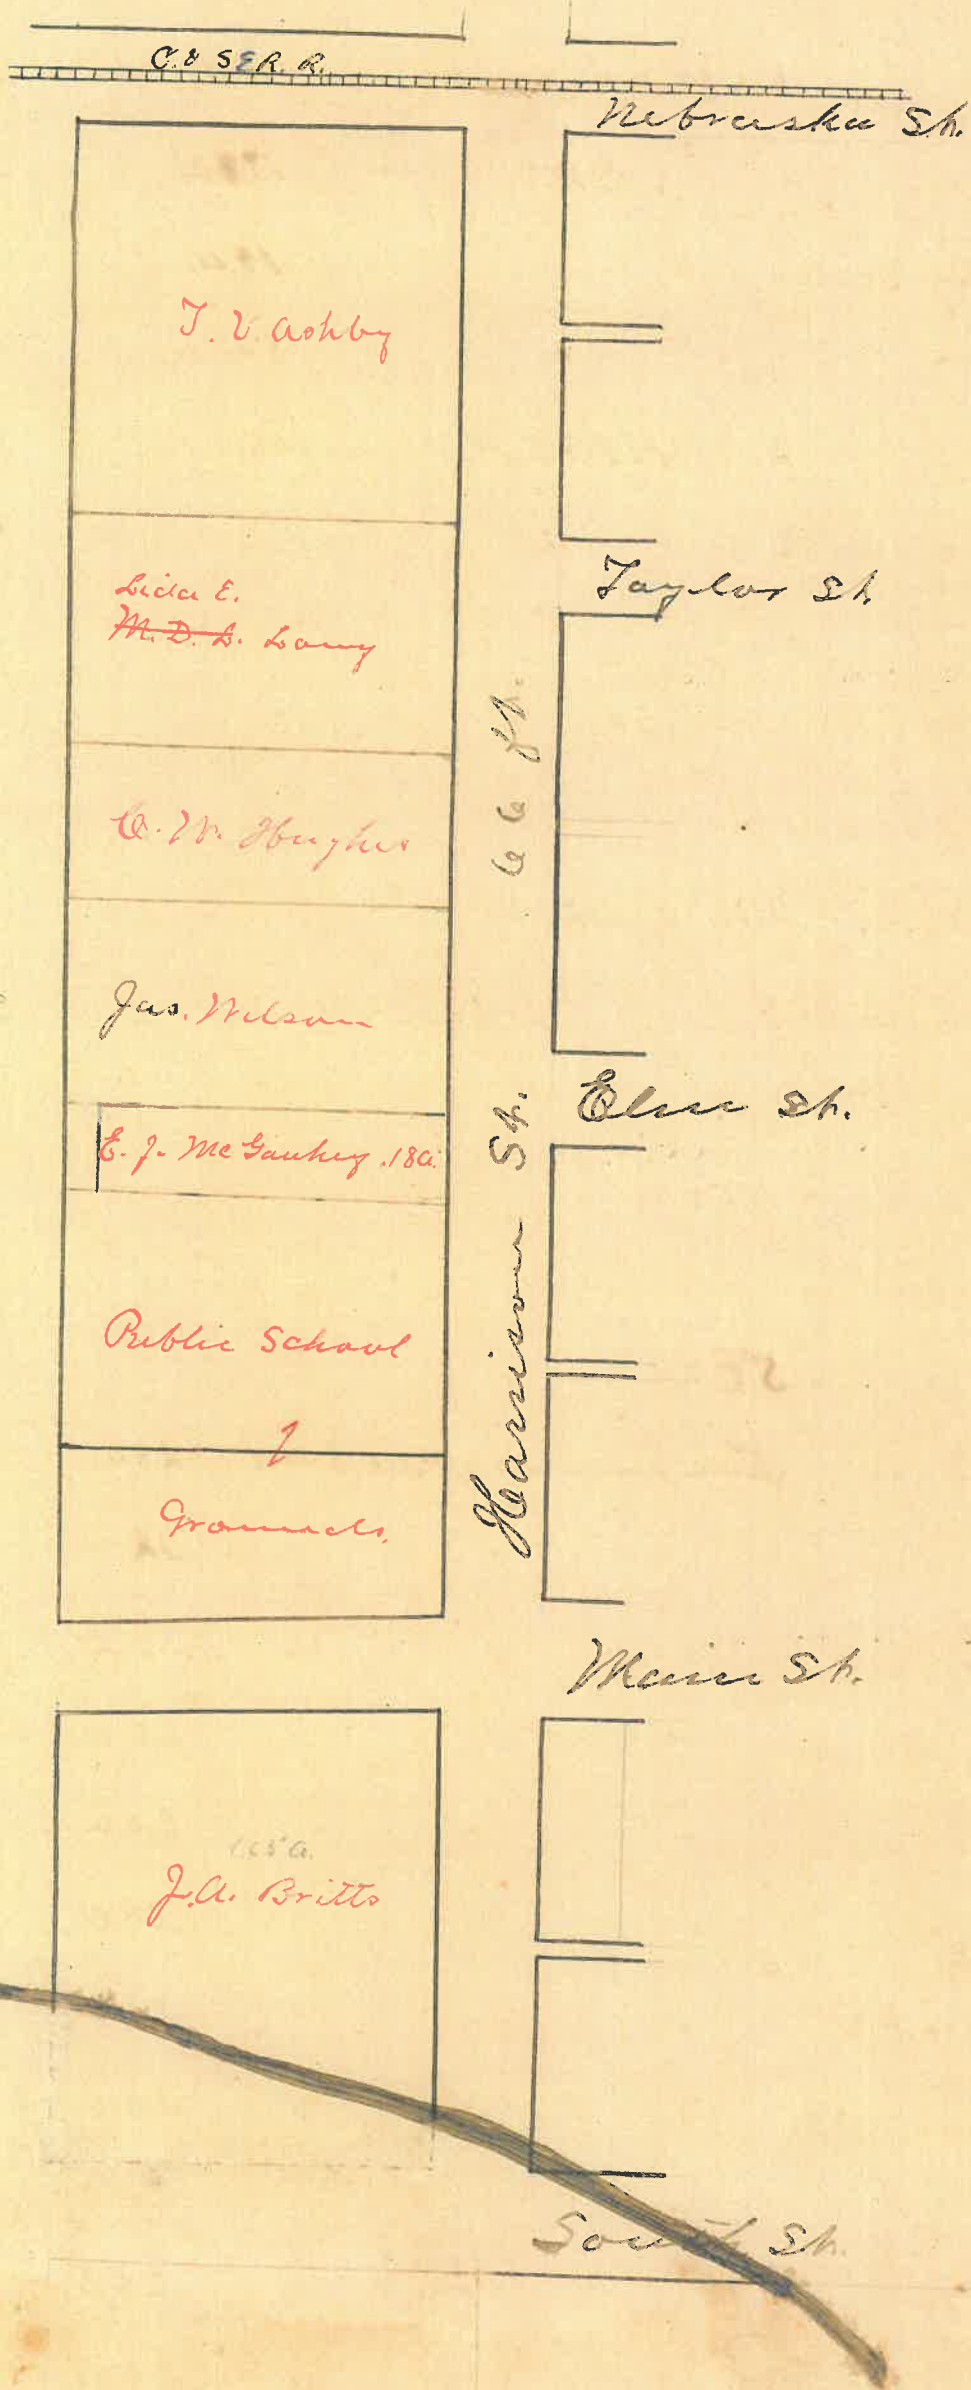 C. & S E R. R.
Nebraska St.
T. V. Ashby
Taylor St.
Lida E.
M. D. L. Lowry
66 ft.
C. W. Hughes
Jas. Wilson
Elm St.
E. J. McGaukey .18a.
Harrison St.
Public School
Grounds.
Main St.
J. A. Britts
South St.